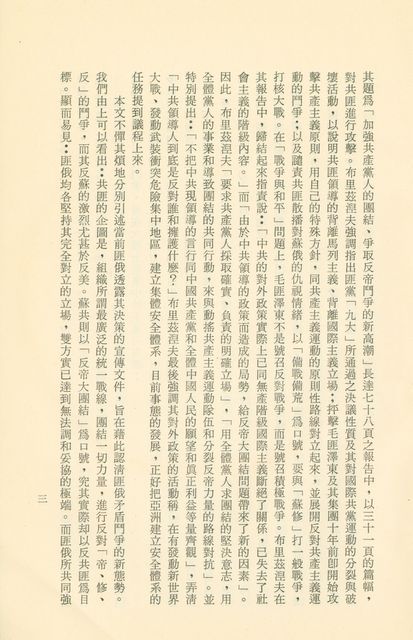 其題爲「加強共產黨人的團結、爭取反帝鬥爭的新高潮」長達七十八頁之報告中，以三十一頁的篇幅，
對共匪進行攻擊。布里茲湼夫強調指出匪黨「九大」所通過之決議性質及其對國際共黨運動的分裂與破
壞活動，以說明共匪領導的背離馬列主義、背離國際主義立塲：抨擊毛匪澤東及其集團十年前卽開始攻
擊共產主義原則，用自己的特殊方針，同共產主義運動的原則性路線對立起來，並展開反對共產主義運
動的鬥爭：以及譴責共匪散播對蘇俄的仇視情緒，以「備戰備荒」爲口號，要與「蘇修」打一般戰爭，
打核大戰。在「戰爭與和平」問題上，毛匪澤東不是號召反對戰爭，而是號召積極戰爭。布里茲湼夫在
其報告中，歸結起來指責說：「中共的對外政策實際上已同無產階級國際主義斷絕了關係，已失去了社
會主義的階級內容。」而「由於中共領導的政策而造成的局勢，給反帝大團結問題帶來了新的因素」。
因此，布里茲湼夫「要求共產黨人採取確實、負責的明確立塲」，「用全體黨人求團結的堅決意志，用
全體黨人的事業和導致團結的共同行動，來與動搖共產主義運動隊伍和分裂反帝力量的路線對抗」。並
特別提出：「不把中共現領導的言行同中國共產黨和全體中國人民的願望和眞正利益等量齊觀」，弄淸
「中共領導人到底是反對誰和擁護什麼？」布里茲湼夫最後強調其對外政策的活動稱，在有發動新世界
大戰、發動武裝衝突危險集中地區，建立集體安全體系，目前事態的發展，正好把亞洲建立安全體系的
任務提到議程上來。
本文不憚其煩地分別引述當前匪俄透露其決策的宣傳文件，旨在藉此認淸匪俄矛盾鬥爭的新態勢。
我們由上可以看出：共匪的企圖是，組織所謂最廣泛的統一戰線，團結一切力量，進行反對「帝、修、
反」的鬥爭，而其反蘇的激烈尤甚於反美。蘇共則以「反帝大團結」爲口號，究其實際却以反共匪爲目
標。顯而易見：匪俄均各堅持其完全對立的立塲，雙方實已達到無法調和妥協的極端。而匪俄所共同強
三